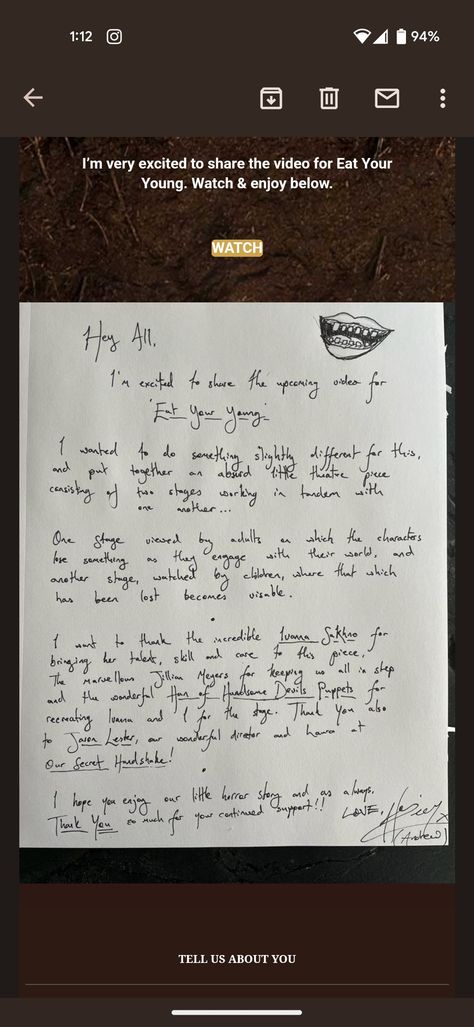 1:12
94%
I'm very excited to share the video for Eat Your
Young. Watch & enjoy below.
WATCH
Hey All,
I'm excited to share the upcoming video for
'Eat Your Young'
I wanted to do something slightly different for this,
and put together an absurd little theatre piece
consisting of two stages working in tandem with
one another...
One stage viewed by adults on which the characters
lose something as they engage with their world, and
another stage, watched by children, where that which
has been lost becomes visable.
I want to thank the incredible Ivanna Sakhno for
bringing her talent, skill and care to this piece,
The marvellous Jillian Meyers for keeping us all in step
and the wonderful Han of Handsome Devils Puppets for
recreating Ivanna and I for the stage. Thank You also
to Jason Lester, our wonderful director and Laura at
Our Secret Handshake!
I hope you enjoy our little horror story and as always,
Thank You so much for your continued support!!
LOVE, Hozier x
(Andrew)
TELL US ABOUT YOU